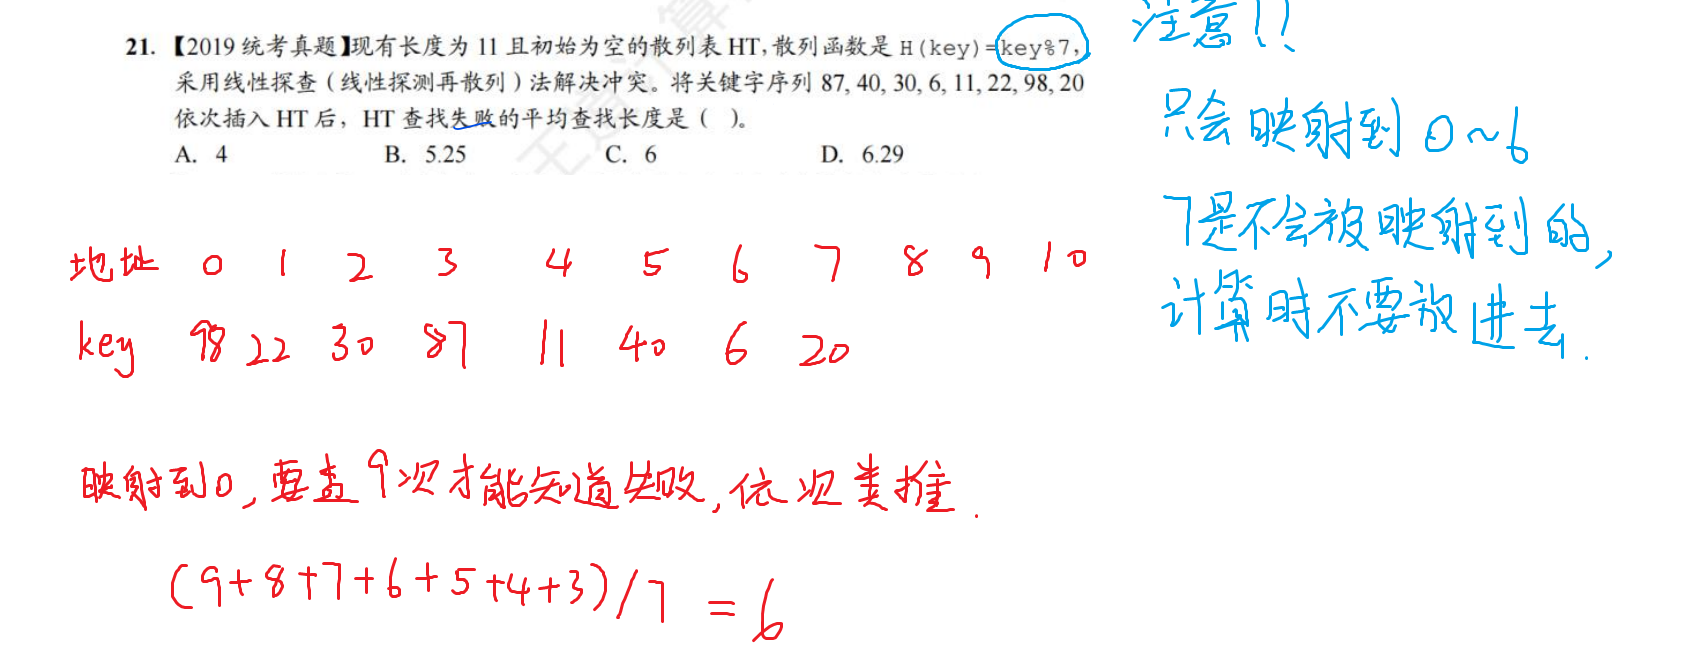 注意!!
21.【2019 统考真题】现有长度为 11 且初始为空的散列表 HT,散列函数是 H(key)=key%7,
采用线性探查(线性探测再散列)法解决冲突。将关键字序列 87, 40, 30, 6, 11, 22, 98, 20
依次插入 HT 后,HT 查找失败的平均查找长度是( )。
A. 4 B. 5.25 C. 6 D. 6.29
只会映射到 0~6
7是不会被映射到的,
计算时不要放进去.
地址 0 1 2 3 4 5 6 7 8 9 10
key 98 22 30 87 11 40 6 20
映射到0,要查9次才能知道失败,依次类推.
(9+8+7+6+5+4+3)/7 =6